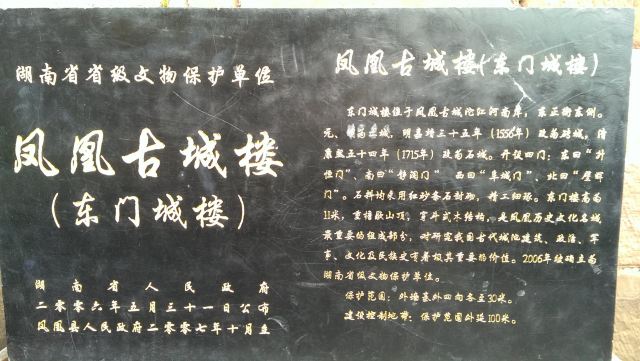 湖南省省级文物保护单位
凤凰古城楼
(东门城楼)
湖南省人民政府
二零零六年五月三十一日公布
凤凰县人民政府二零零七年十月立
凤凰古城楼(东门城楼)
东门城楼位于凤凰古城沱江河南岸，东正街东侧。
元、 土城，明嘉靖三十五年（1556年）改为砖城，清
康熙五十四年（1715年）改为石城。开设四门：东曰“升
恒门”、南曰“静澜门” 西曰“阜城门”、北曰“璧辉
门”。石料均采用红砂条石制砌，精工细琢。东门楼高为
11米，重檐歇山顶，穿斗式木结构，是凤凰历史文化名城
最重要的组成部分，对研究我国古代城池建筑、政治、军
事、文化及民族史有着极其重要的价值。2006年被确立为
湖南省级文物保护单位。
保护范围：外墙基外四向各至30米。
建设控制地带：保护范围外延100米。